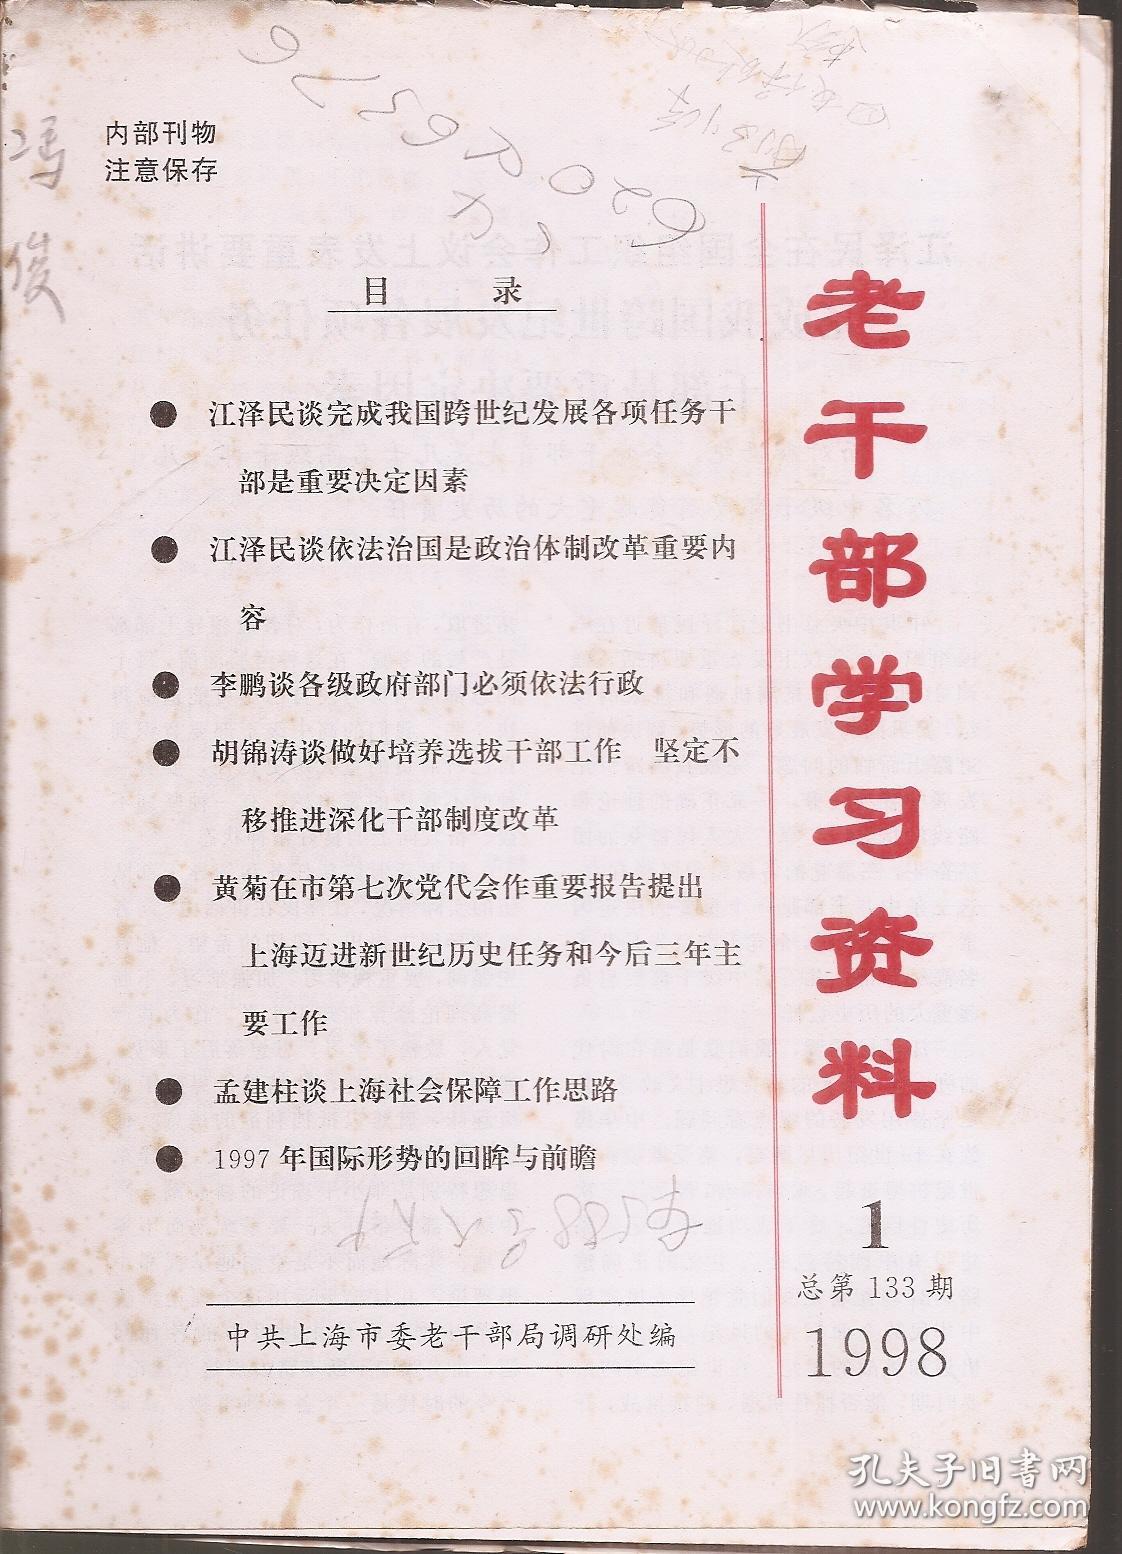 内部刊物
注意保存
冯
俊
目 录
● 江泽民谈完成我国跨世纪发展各项任务干
部是重要决定因素
● 江泽民谈依法治国是政治体制改革重要内
容
● 李鹏谈各级政府部门必须依法行政
● 胡锦涛谈做好培养选拔干部工作 坚定不
移推进深化干部制度改革
● 黄菊在市第七次党代会作重要报告提出
上海迈进新世纪历史任务和今后三年主
要工作
● 孟建柱谈上海社会保障工作思路
● 1997年国际形势的回眸与前瞻
中共上海市委老干部局调研处编
老干部学习资料
1
总第133期
1998
孔夫子旧书网
www.kongfz.com